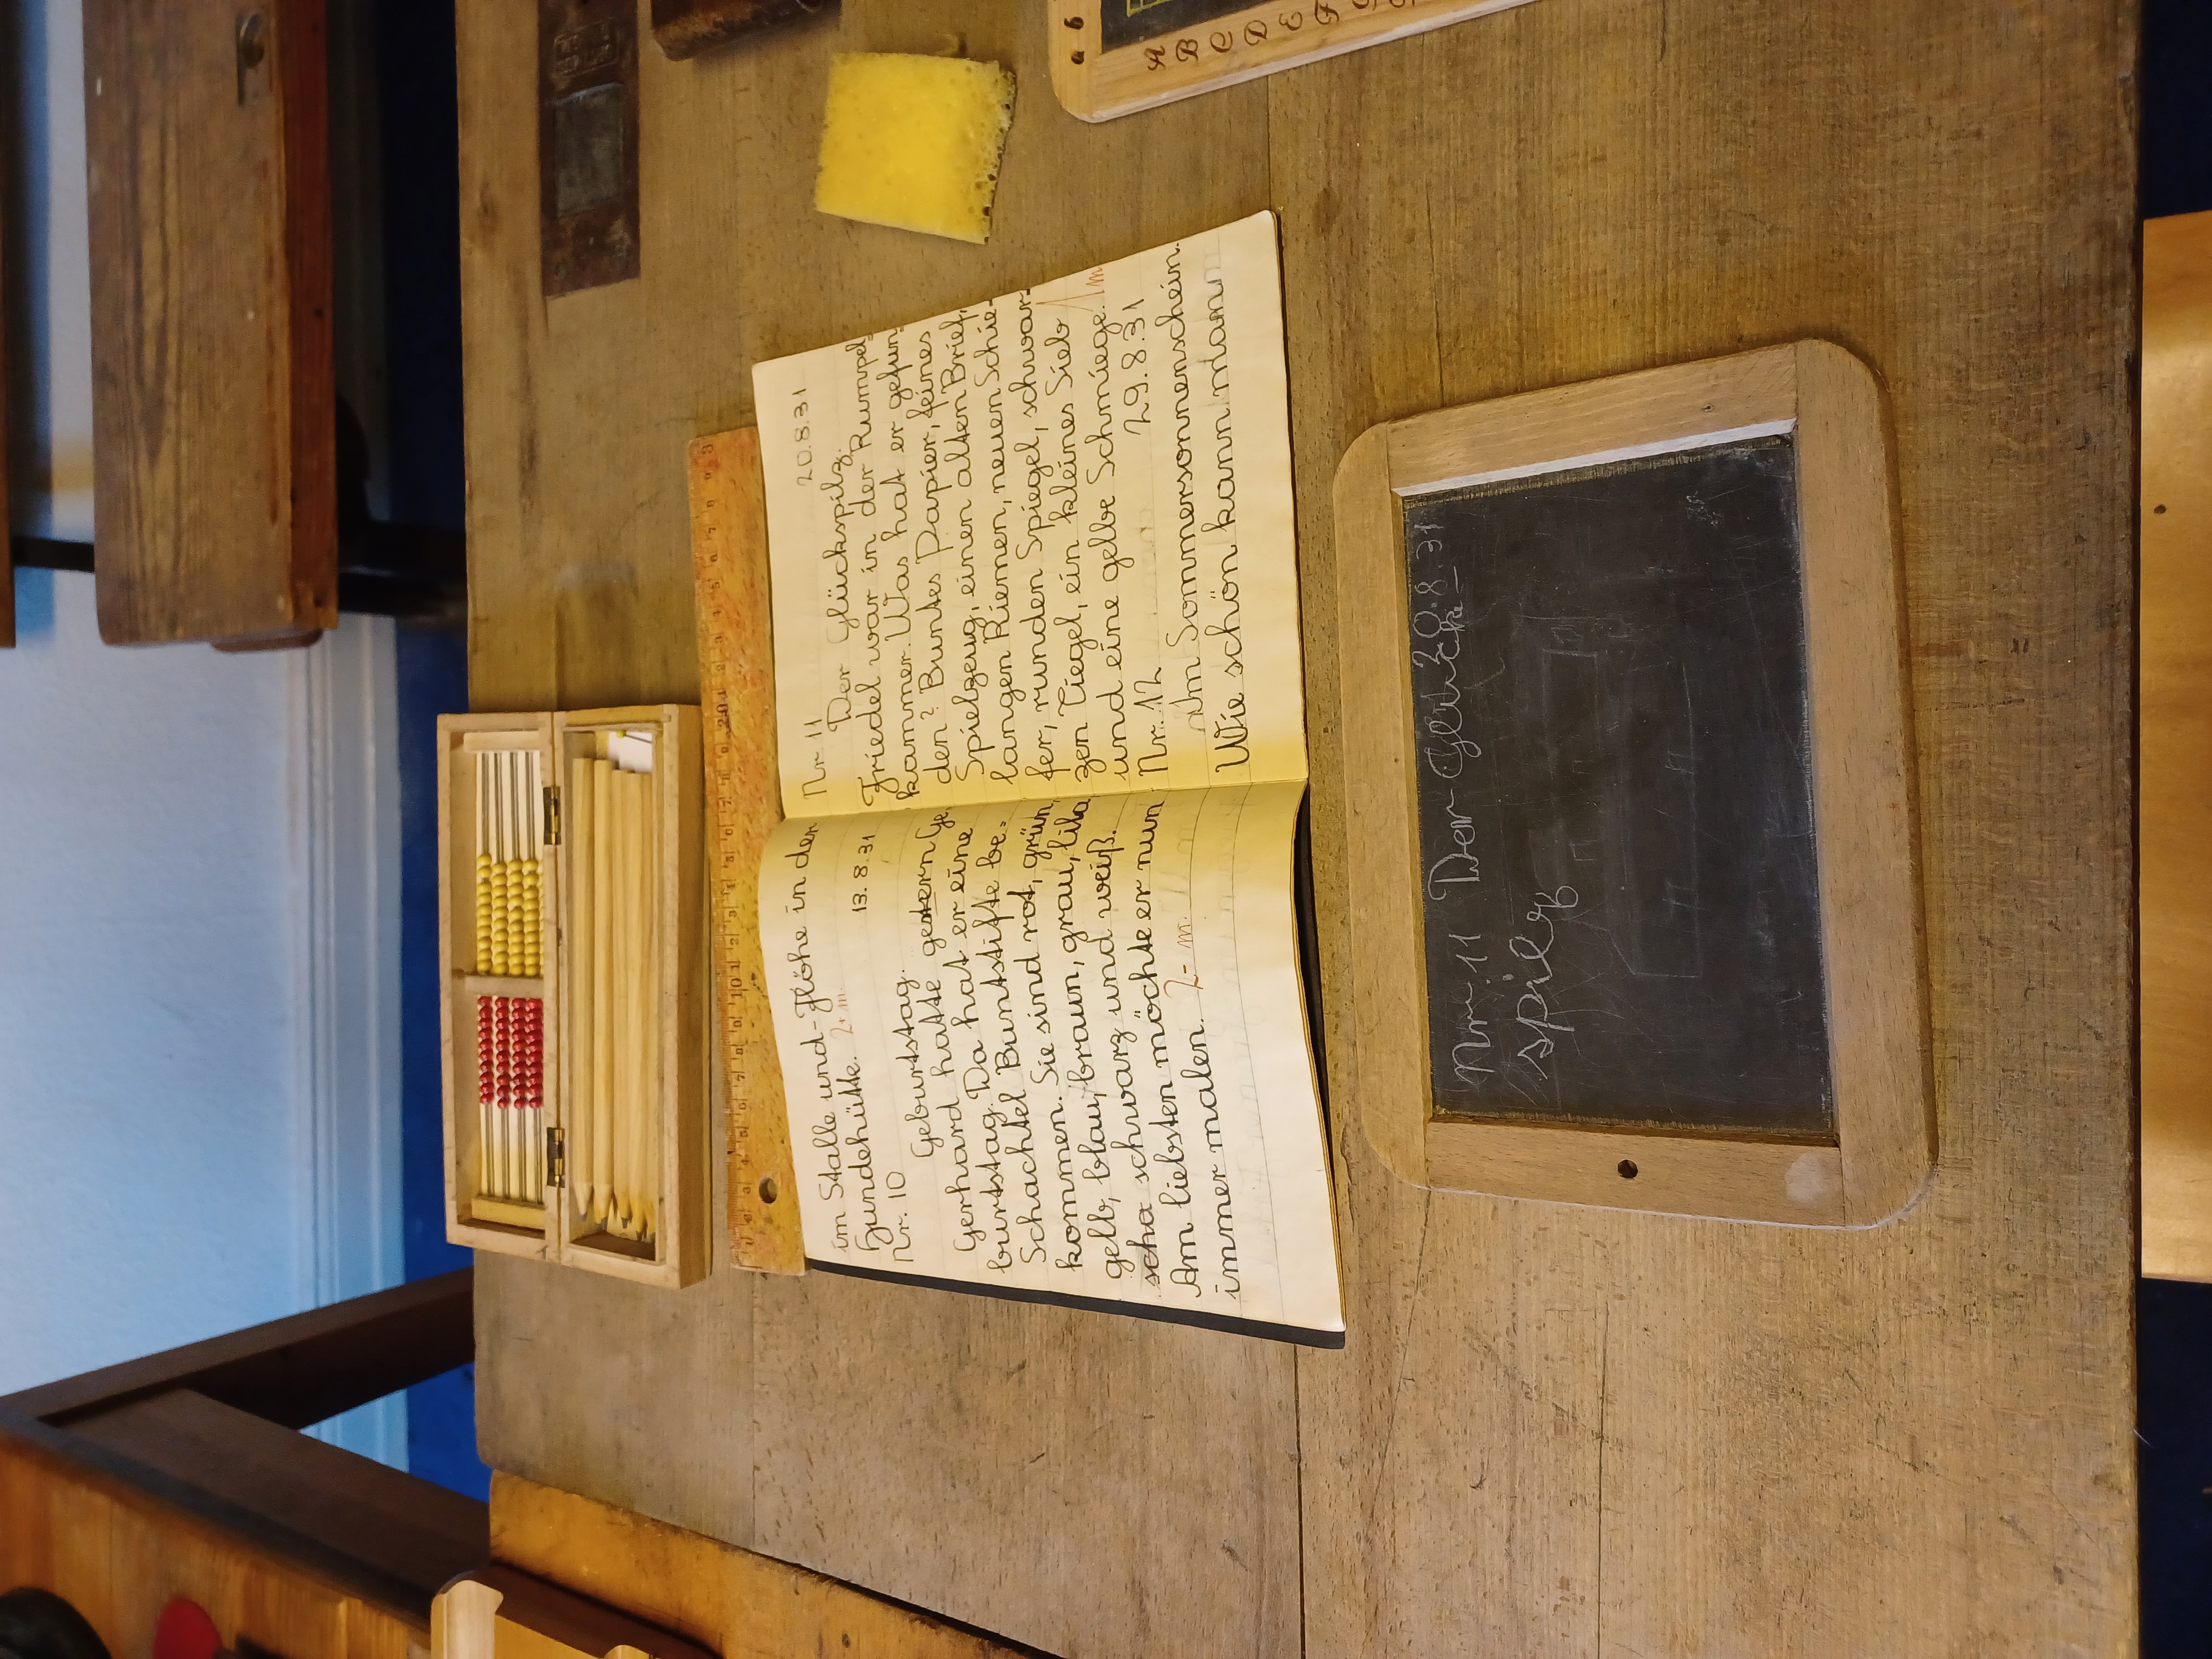 im Stalle und Flöhe in der
Hundehütte. 2+m.
Nr. 10 13.8.31
Geburtstag.
Gerhard hatte gestern Ge,
burtstag. Da hat er eine
Schachtel Buntstifte be=
kommen. Sie sind rot, grün,
gelb, blau, braun, grau, lila
scha schwarz und weiß.
Am liebsten möchte er nun
immer malen. 2- m.
Nr 11 20.8.31
Der Glückspilz.
Friedel war in der Rumpel,
kammer. Was hat er gefun,
den? Buntes Papier, feines
Spielzeug, einen alten Brief,
langen Riemen, neuen Schie=
fer, runden Spiegel, schwar=
zen Tiegel, ein kleines Sieb
und eine gelbe Schmiege. 1m
Nr. 12 29.8.31
Am Sommersonnenschein.
Wie schön kann man
20.8.31
Nr. 11 Der Glück-
spilz
a b
A
B
C
D
E
F